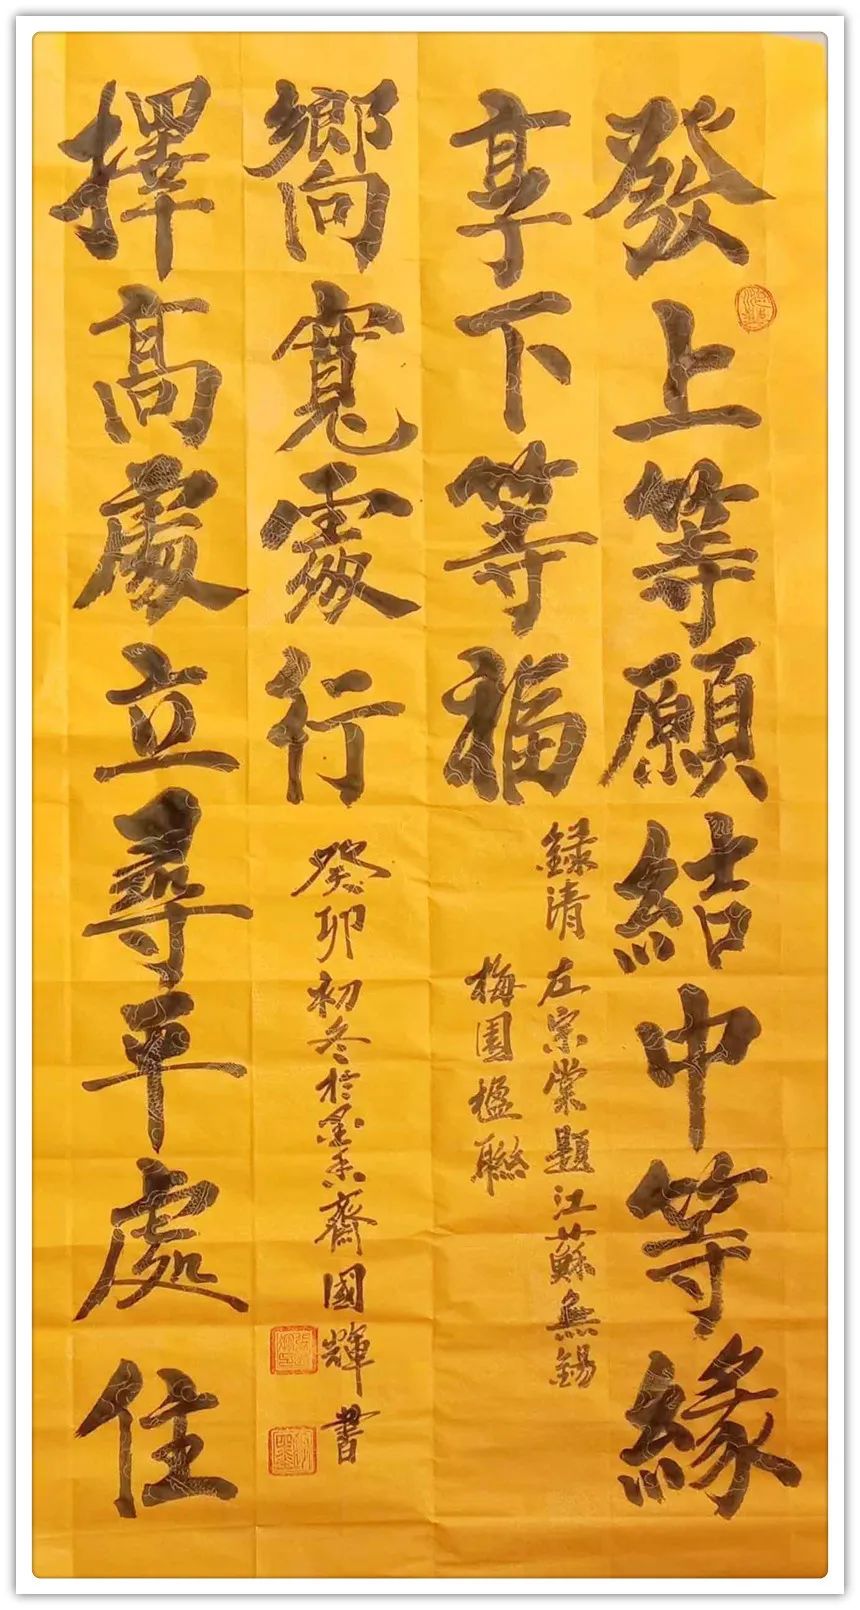 發上等願結中等緣
享下等福
錄清左宗棠題江蘇無錫
梅園楹聯
擇髙處立尋平處住
嚮寬處行
癸卯初冬於墨香齋國輝書